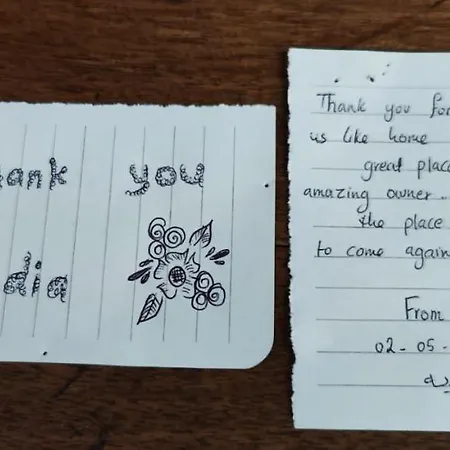 ank you
dia
Thank you for
us like home
great place
amazing owner.
the place
to come again
From
02-05-